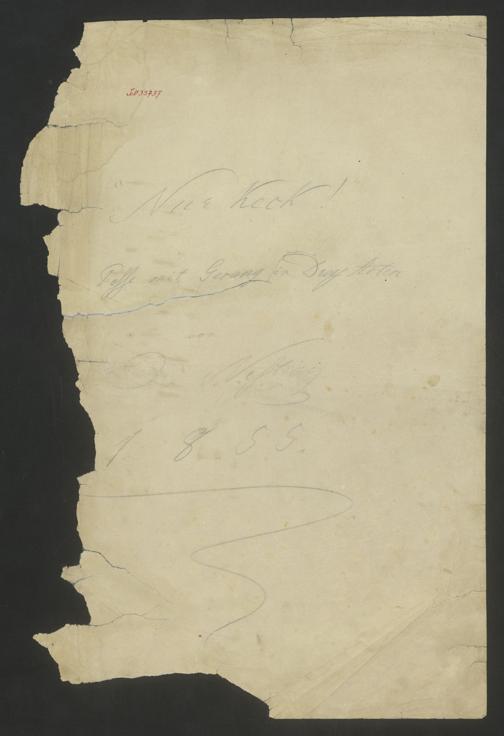 I.N. 33737
"Nur Keck!
Posse mit Gesang in Drey Acten
von
Nestroy
1855.